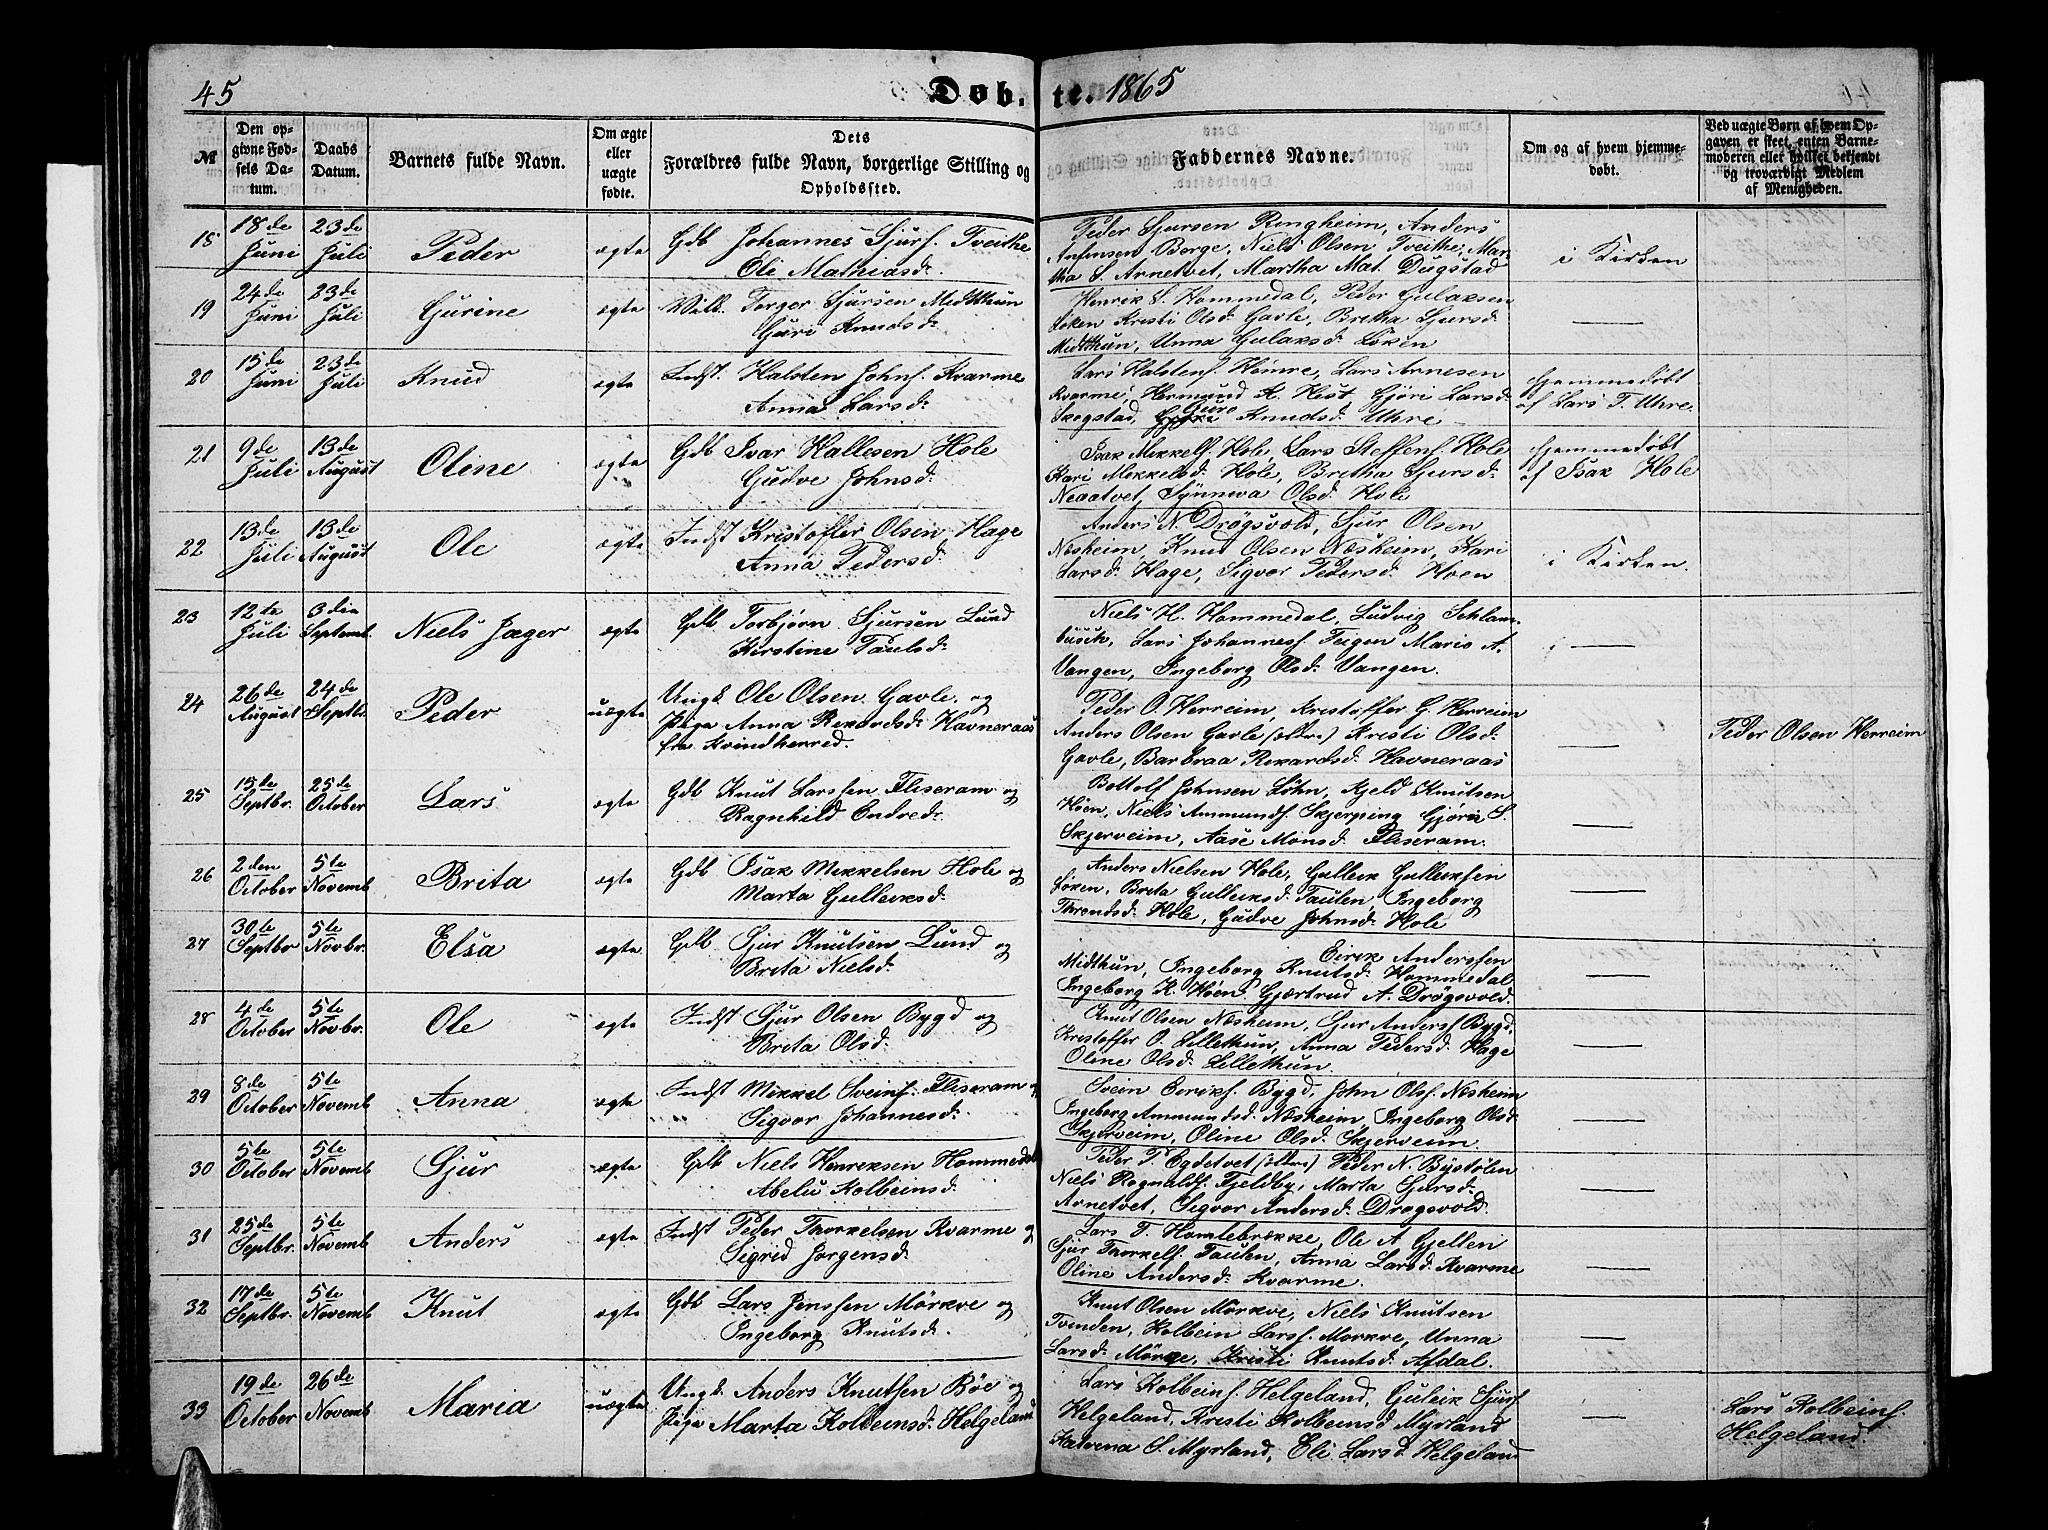 45
Døb. te. 1865
№
Den op-
givne Fød-
sels Da-
tum.
Daabs
Datum.
Barnets fulde Navn.
Om ægte
eller
uægte
fødte.
Dets
Forældres fulde Navn, borgerlige Stilling og
Opholdssted.
Faddernes Navne.
Om og af hvem hjemme-
døbt.
Ved uægte Børn af hvem Op-
gaven er skeet, enten Barne-
moderen eller hvilket bekjendt
og troværdigt Medlem
af Menigheden.
18 18de Juni 23de Juli Peder ægte Gdb Johannes Sjurs. Tveithe
Eli Mathiasd:
Peder Sjursen Ringheim, Anders
Anfinsen Borge, Niels Olsen Tveithe, Mar-
tha S. Arnetvet, Martha Mat. Dugstad
i Kirken
19 24de Juni 23de Juli Gurine ægte Torger Sjursen Midtthun
Guri Knudsd:
Henrik S. Hommedal, Peder Gulaksen
Løken Kristi Olsd: Gavle, Bretha Sjursd:
Midtthun, Unna Gulaksd: Løken
20 15de Juni 23de Juli Knud ægte Indst. Halsten Johns. Kvarme
Anna Larsd:
Lars Halstens. Himre, Lars Arnesen
Kvarme, Hermund K. Hust, Gjøri Larsd:
Skogstad, Guro Knudsd: Uhre
Hjemmedøbt
af Lars T. Uhre.
21 9de Juli 13de August Oline ægte Gdb Ivar Hallesen Hole
Gudve Johnsd:
Isak Mikkels. Hole, Lars Steffens. Hole
Kari Mekkelsd: Hole, Bretha Sjursd:
Neaatvet, Synneva Olsd: Hole
Hjemmedøbt
af Isak Hole
22 13de Juli 13de August Ole ægte Indst Kristoffer Olsen Hage
Anna Pedersd:
Anders N. Drøgsvold, Sjur Olsen
Næsheim, Knut Olsen Næsheim, Kari
Larsd: Hage, Sigvor Pedersd: Høen
i Kirken.
23 12te Juli 3die Septemb. Niels Jæger ægte Gdb Torbjørn Sjursen Lund
Kirstine Paulsd:
Niels H. Hommedal, Ludvig Schlam-
busch, Lars Johanness. Teigen Maria A.
Vangen, Ingeborg Olsd: Vangen.
i
24 26de August 24de Septbr. Peder uægte Ungk Ole Olsen Gavle og
Pige Anna Rekardsd: Havneraas
fra Kvindherred.
Peder O. Herreim, Kristoffer G. Herreim
Anders Olsen Gavle (ældre) Kristi Olsd:
Gavle, Barbraa Rekardsd: Havneraas
Peder Olsen Herreim
25 15de Septbr. 25de October Lars ægte Gdb Knut Larssen Fliseram og
Ragnhild Endred:
Bottolf Johnsen Løhn, Kjeld Knutsen
Høen, Niels Ammunds. Skjerping Gjøri S.
Skjerveim, Aase Monsd: Fliseram.
26 2den October 5te Novemb Brita ægte Gdb Isak Mikkelsen Hole og
Marta Gulleiksd:
Anders Nielsen Hole, Gulleik Gulleiksen
Løken, Brita Gulleiksd: Tauten, Ingeborg
Throndsd: Hole, Gudve Johnsd: Hole
27 30te Septbr 5te Novbr. Elsa ægte Gdb Sjur Knutsen Lund og
Brita Nielsd:
Eirik Anderssen
Midthun, Ingeborg Knutsd: Hommedal
Ingeborg K. Høen. Gjærtrud A. Drøgsvold.
28 4de October 5te Novbr. Ole ægte Indst Sjur Olsen Bygd og
Brita Olsd:
Knut Olsen Næsheim, Sjur Anders. Bygd,
Kristoffer O. Lillethun, Anna Pedersd: Hage
Oline Olsd: Lillethun.
29 8de October 5te Novemb Anna ægte Indst Mikkel Sveins. Fliseram og
Sigvor Johannesd:
Svein Eiriks. Bygd, John Ols. Næsheim
Ingeborg Ammundsd: Næsheim, Ingeborg Olsd:
Skjerveim, Oline Olsd: Skjerveim.
30 5te October 5te Novemb Sjur ægte Gdb Niels Henriksen Hommedal
Abelu Kolbeinsd:
Peder T. Egdetvet (ældre) Peder N. Bystølen
Niels Rognalds. Fjeldby, Marta Sjursd:
Arnetvet, Sigvor Andersd: Dragsvold.
31 25de Septbr. 5te Novemb Anders ægte Indst Peder Thorkelsen Kvarme og
Sigrid Jørgensd:
Lars T. Hamlebrække, Ole A Gjelleri
Sjur Thorkels. Tauten, Anna Larsd: Kvarme
Oline Andersd: Kvarme.
32 17de Septbr. 5te Novemb Knut ægte Gdb Lars Jenssen Mørkve og
Ingeborg Knutsd:
Knut Olsen Mørkve, Niels Knutsen
Tvinden, Kolbein Larss. Mørkve, Unna
Larsd: Mørge, Kristi Knutsd: Afdal.
33 19de October 26de Novemb Maria uægte Ungk. Anders Knutsen Bøe og
Pige Marta Kolbeinsd: Helgeland
Lars Kolbeins. Helgeland, Guleik Sjurs.
Helgeland, Kristi Kolbeinsd Myrland
Katrina S. Myrland, Eli Larsd: Helgeland
Lars Kolbeins.
Helgeland.